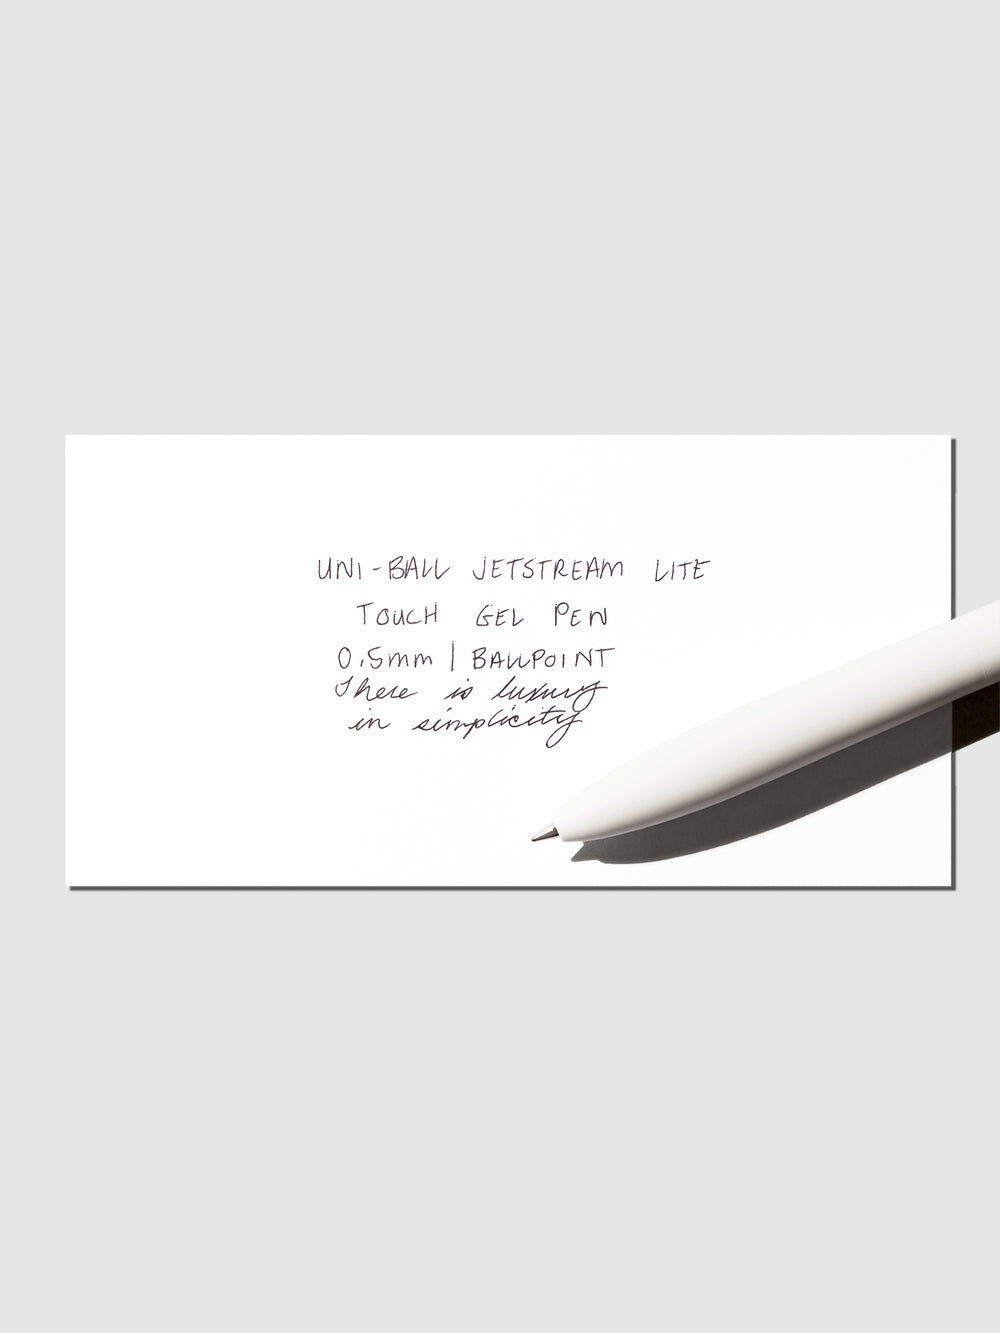 UNI-BALL JETSTREAM LITE
TOUCH GEL PEN
0.5mm | BALLPOINT
There is luxury
in simplicity